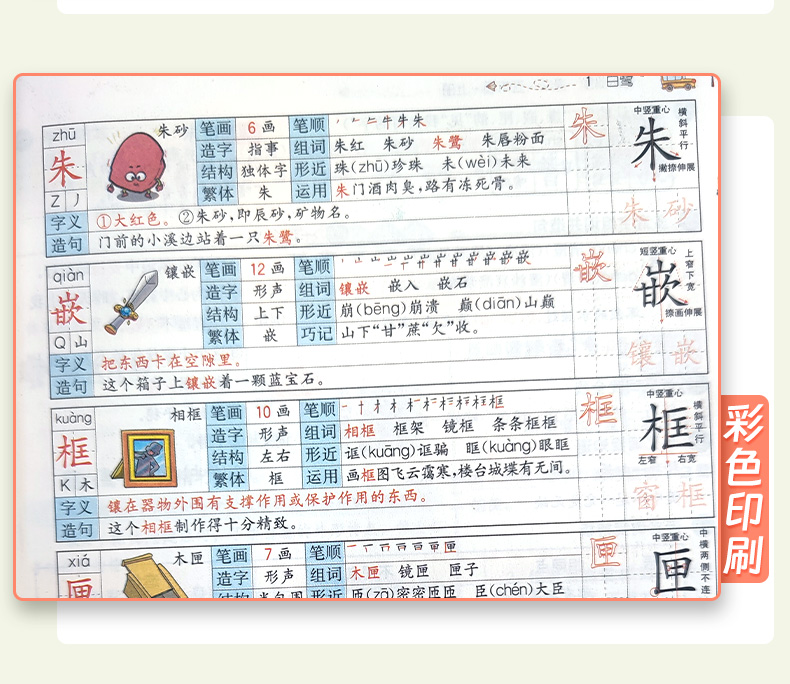 1 白鹭
zhū 朱砂 笔画 6画 笔顺 朱
中竖重心 横斜平行
朱 造字 指事 组词 朱红 朱砂 朱鹭 朱唇粉面
朱
结构 独体字 形近 珠(zhū)珍珠 未(wèi)未来
撇捺伸展
Z 丿 繁体 朱 运用 朱门酒肉臭,路有冻死骨。
字义 ①大红色。②朱砂,即辰砂,矿物名。
朱砂
造句 门前的小溪边站着一只朱鹭。
qiàn 镶嵌 笔画 12画 笔顺 嵌
短竖重心 上窄下宽
嵌 造字 形声 组词 镶嵌 嵌入 嵌石
嵌
结构 上下 形近 崩(bēng)崩溃 巅(diān)山巅
捺画伸展
Q 山 繁体 嵌 巧记 山下“甘”蔗“欠”收。
字义 把东西卡在空隙里。
镶嵌
造句 这个箱子上镶嵌着一颗蓝宝石。
kuàng 相框 笔画 10画 笔顺 框
中竖重心 横斜平行
框 造字 形声 组词 相框 框架 镜框 条条框框
框
结构 左右 形近 诓(kuāng)诓骗 眶(kuàng)眼眶
左窄 右宽
K 木 繁体 框 运用 画框图飞云霭寒,楼台城堞有无间。
字义 镶在器物外围有支撑作用或保护作用的东西。
窗框
造句 这个相框制作得十分精致。
xiá 木匣 笔画 7画 笔顺 匣
中竖重心 中横两侧不连
匣 造字 形声 组词 木匣 镜匣 匣子
匣
结构 半包围 形近 匝(zā)密密匝匝 臣(chén)大臣
彩色印刷